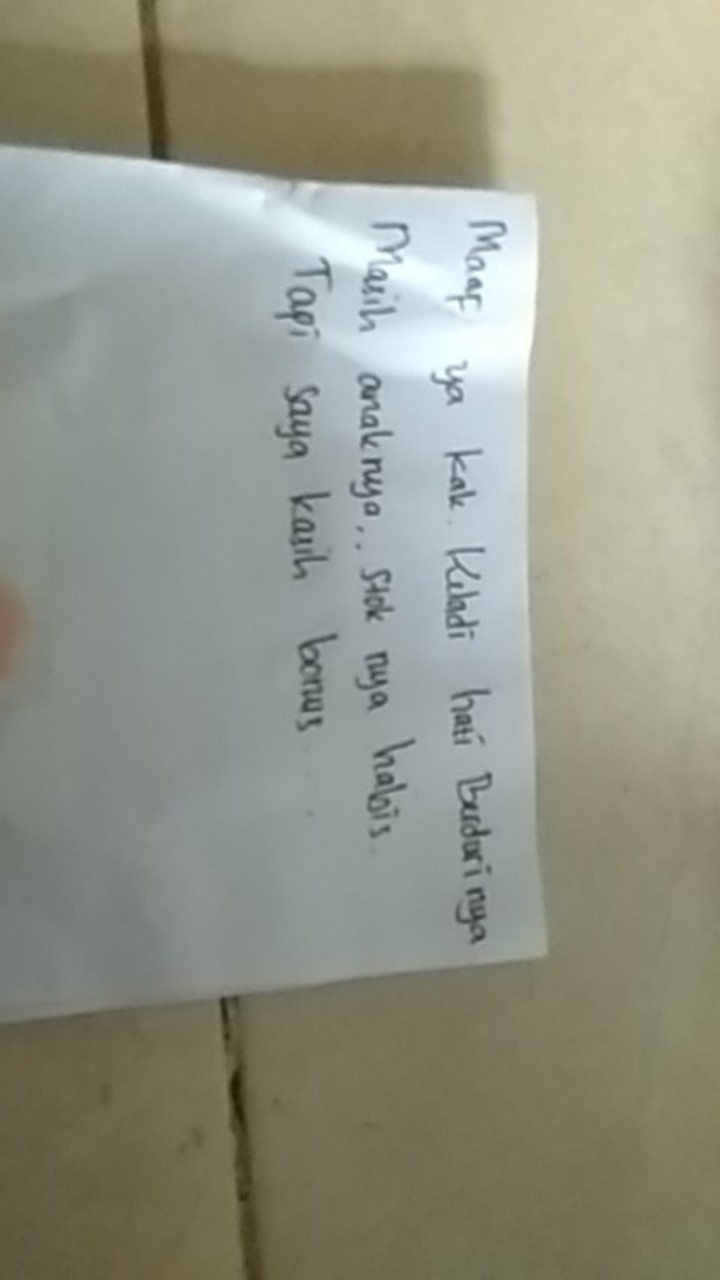 Maaf ya kak. Keladi hati Berduri nya
Masih anaknya,. Stok nya habis.
Tapi saya kasih bonus . . .